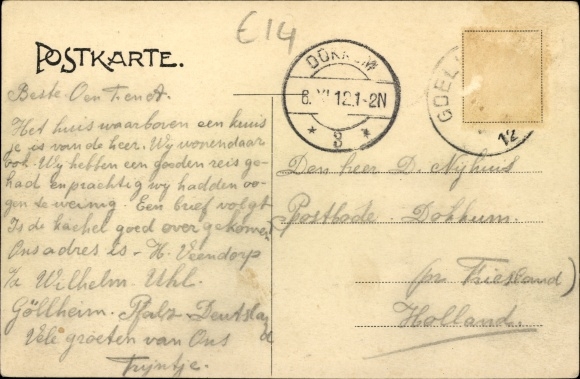 E14
POSTKARTE.
DOKKUM
6. XI 12.1-2N
* 3 *
GOEL
12
Beste Oen Ten A.
Het huis waarboven een kruis
je is van de heer. Wij wonen daar
ook. Wij hebben een goeden reis ge-
had en prachtig wij hadden oo-
gen te weinig. Een brief volgt
Is de kachel goed over gekomen
Ons adres is - H. Veendorp
Wilhelm. Uhl.
Göllheim. Pfalz Deutsland
Vele groeten van Ons
Trijntje.
Den heer D. Nijhuis
Postbode Dokkum.
(pr Friesland)
Holland.